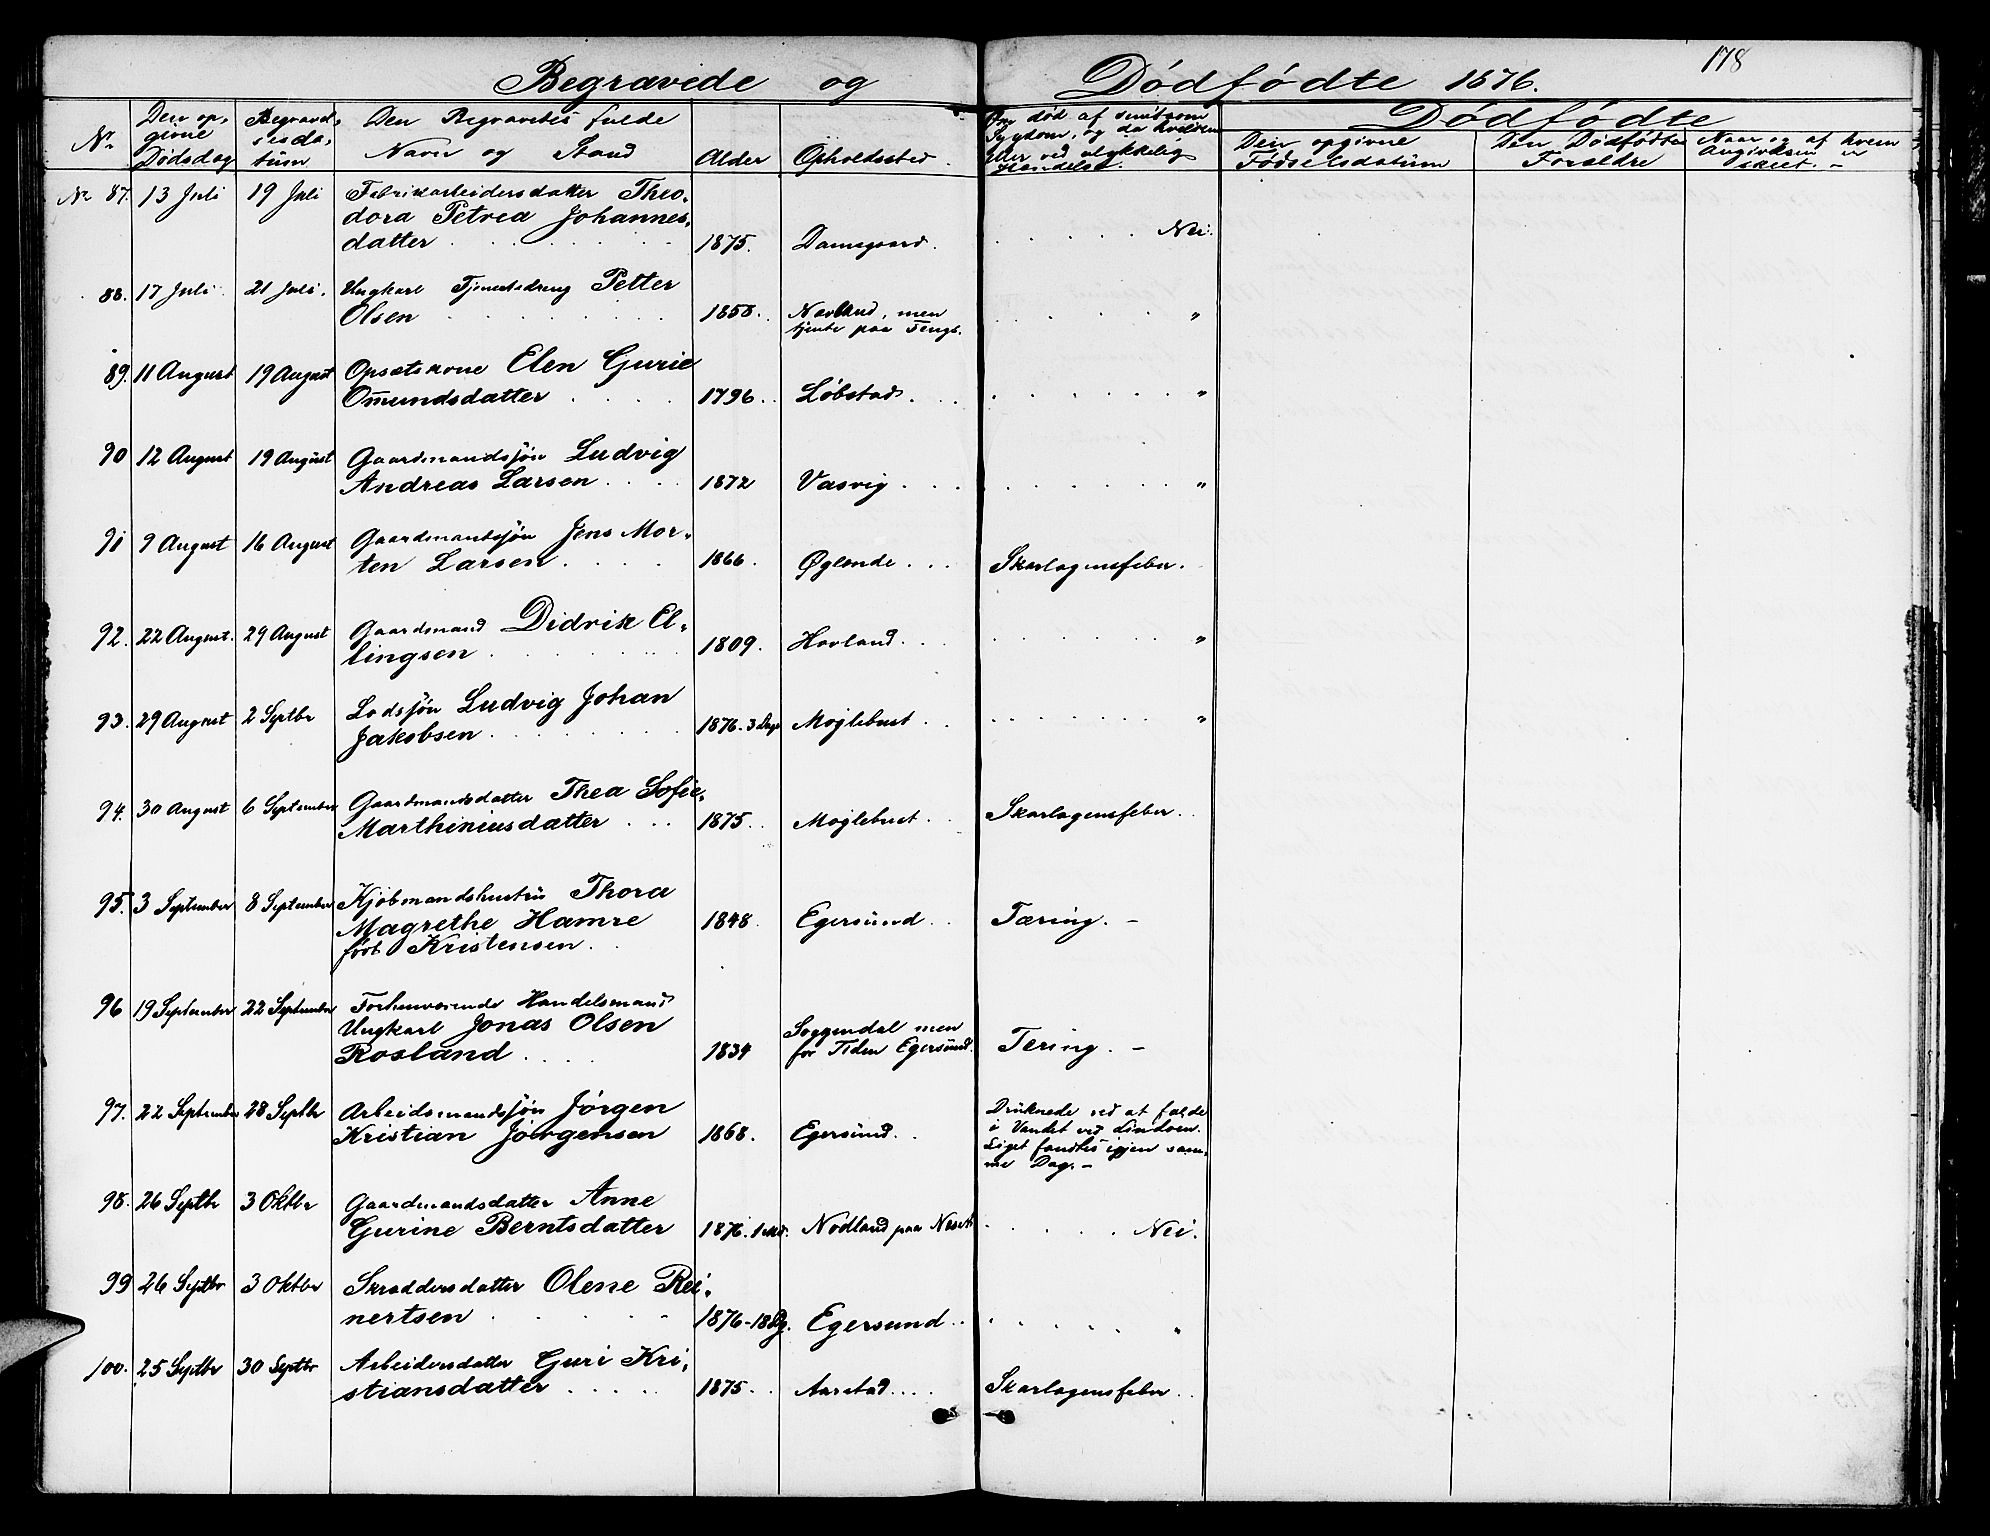 178
Begravede og Dödfödte 1876.
Nr Den opgivne Dödsdag Begravelsesdatum Den Begravedes fulde Navn og Stand Alder Opholdssted. Om död af smitsom Sygdom, og da hvilken Eller ved ulykkelig Hændelse. Dödfödte
Den opgivne Födselsdatum Den Dödfödtes Forældre Naar og af hvem Angivelsen er skeet. -
Nr 87. 13 Juli 19 Juli Fabrikarbeidersdatter Theo-
dora Petrea Johannes-
datter 1875. Damsgaard. Nei.
88. 17 Juli 21 Juli. Ungkarl Tjenestedreng Petter
Olsen 1858. Navland, men
tjente paa Tengs. "
89. 11 August 19 August Opsætskone Elen Gurie
Omundsdatter 1796. Löbstad. "
90 12 August 19 August Gaardmandssjön Ludvig
Andreas Larsen 1872 Vasvig "
91 9 August 16 August Gaardmandssjön Jens Mor-
ten Larsen 1866. Öglende Skarlagensfeber.
92. 22 August. 29 August Gaardmand Didrik El-
lingsen 1809. Hovland "
93. 29 August 2 Septbr Lodssjön Ludvig Johan
Jakobsen 1876. 3 Dage Moglebust "
94. 30 August 6 September Gaardmandsdatter Thea Sofie
Marthiniusdatter 1875. Moglebust Skarlagensfeber.
95. 3 September 8 September Kjöbmandshustru Thora
Magrethe Hamre
födt Kristensen 1848. Egersund Tæring. -
96 19 September 22 September Forhenværende Handelsmand
Ungkarl Jonas Olsen
Rosland 1834 Soggendal men
for Tiden Egersund. Tering. -
97. 22 September 28 Septbr Arbeidsmandssjön Jörgen
Kristian Jörgensen 1868. Egersund. Druknede ved at falde
i Vandet ved Lindöen.
Liget fandtes igjen sam-
me Dag. -
98. 26 Septbr 3 Oktbr Gaardmandsdatter Anne
Gurine Berntsdatter 1876. 1 Md. Nodland paa Neset Nei.
99 26 Septbr 3 Oktber Skræddersdatter Olene Rei-
nertsen 1876-18 Dg. Egersund "
100. 25 Septbr 30 Septbr Arbeidersdatter Guri Kri-
stiansdatter 1875. Aarstad Skarlagensfeber